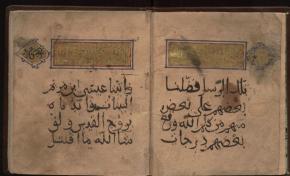 تلك الرسل فضلنا
بعضهم على بعض
منهم من كلم الله ورفع
بعضهم درجات
واتينا عيسى بن مريم
البينات وايدناه
بروح القدس ولو
شا الله ما اقتتل